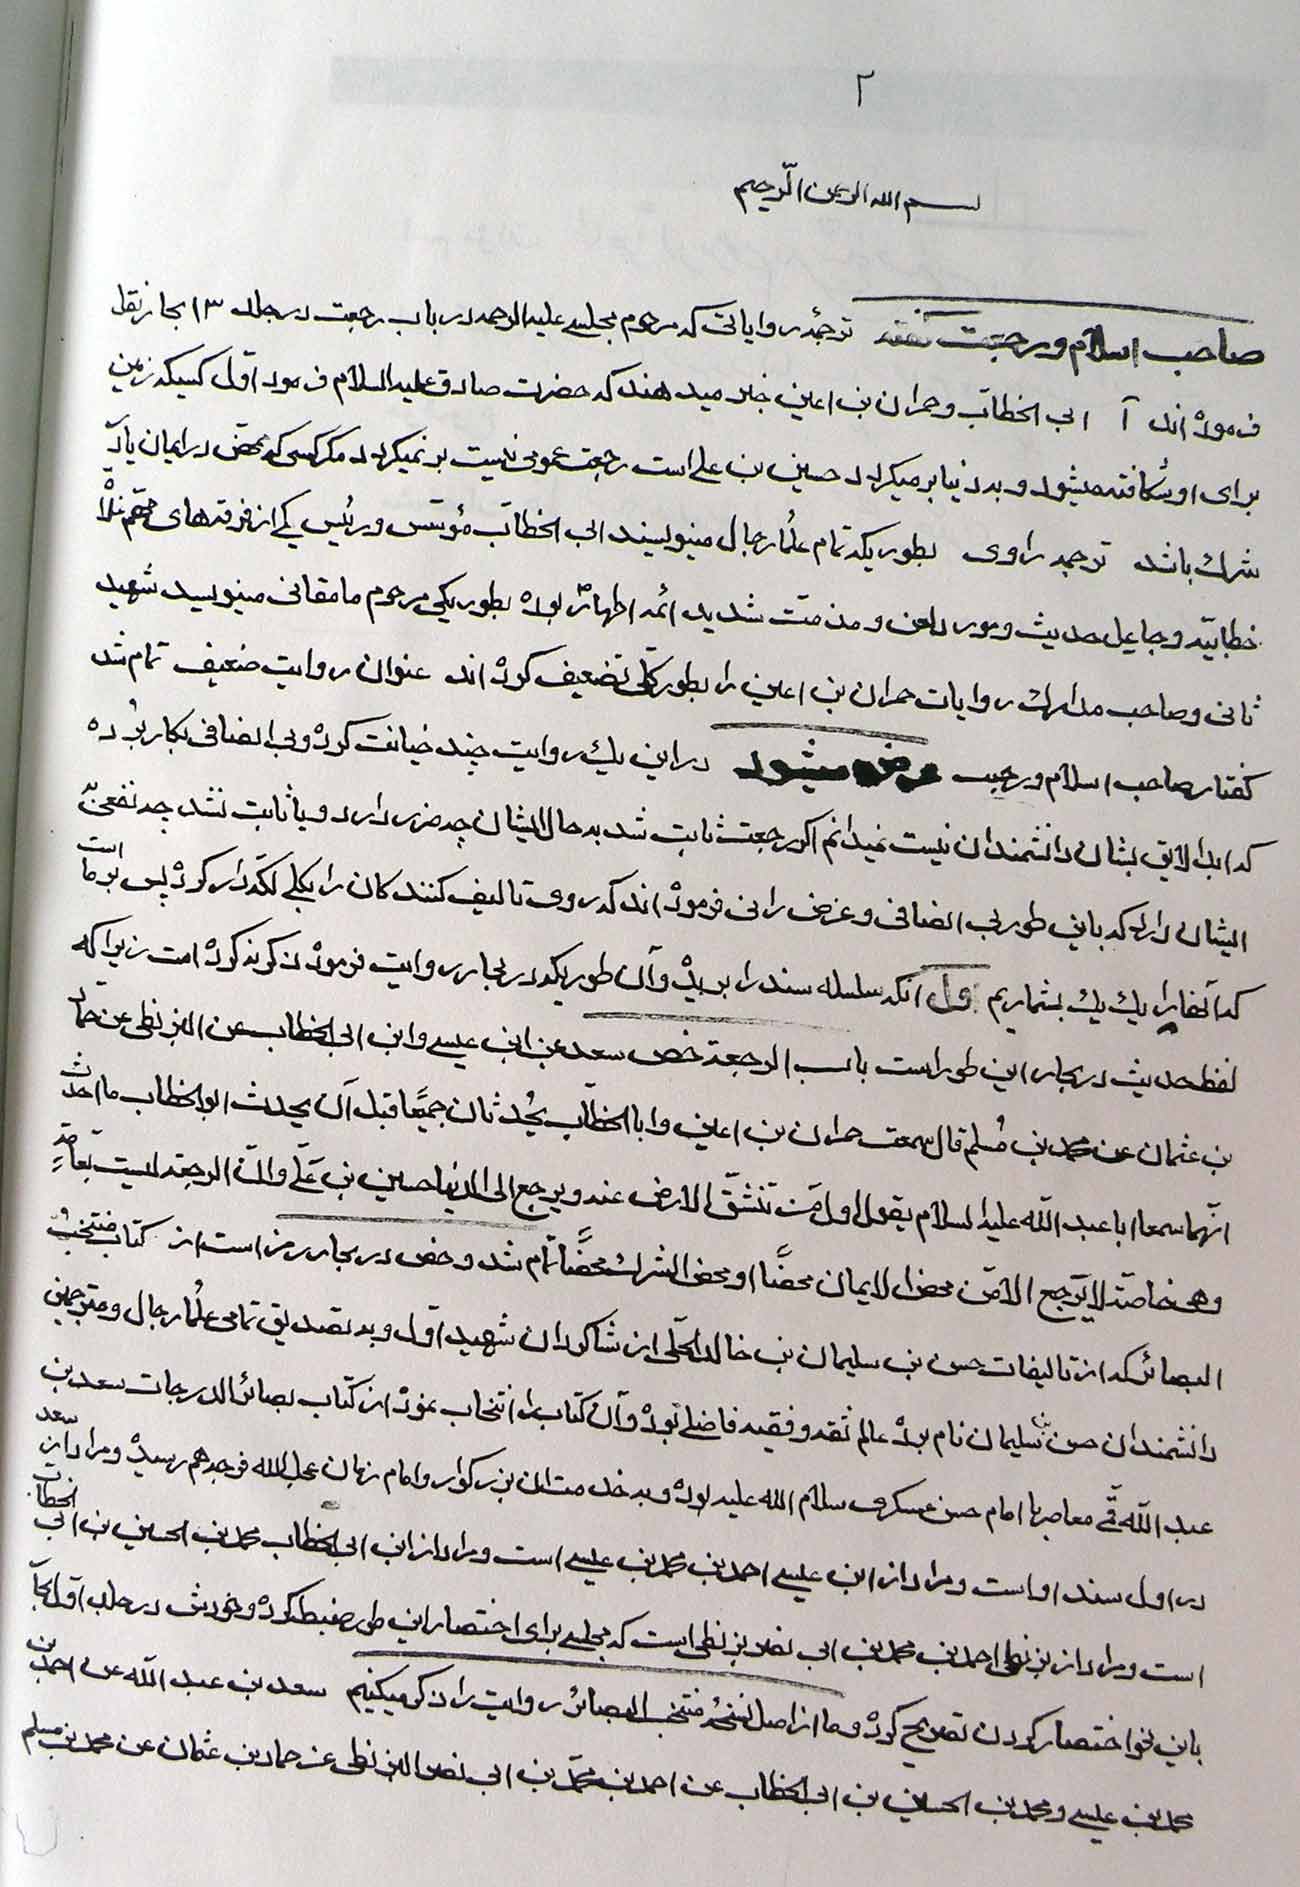 ۲
بسم الله الرحمن الرّحیم
صاحب اسلام و رجعت گفته ترجمهٔ روایاتی که مرحوم مجلسی علیه الرحمه در باب رجعت در جلد ۱۳ بحار نقل
فرموده اند آ ابی الخطاب و حمران بن اعین خبر میدهند که حضرت صادق علیه السلام فرمود اوّل کسیکه زمین
برای او شکافته میشود و به دنیا برمیگردد حسین بن علی است رجعت عمومی نیست بر نمیگردد مگر کسی که محض در ایمان یا در
شرک باشد ترجمه راوی بطوریکه تمام علماء رجال مینویسند ابی الخطاب مؤسّس و رئیس یکی از فرقه های مهمّ غلاة
خطابیّه و جاعل حدیث و مورد لعن و مذمّت شدید ائمه اطهار بوده بطوریکه مرحوم مامقانی مینویسد شهید
ثانی و صاحب مدارک روایات حمران بن اعین را بطور کلّی تضعیف کرده اند عنوان روایت ضعیف تمام شد
گفتار صاحب اسلام و رجعت عرض میشود در این یک روایت چند خیانت کرده و بی انصافی بکار برده
که ابدا لایق بشان دانشمندان نیست نمیدانم اگر رجعت ثابت شد به حال ایشان چه ضرر دارد و یا ثابت نشد چه نفعی
ایشان دارد که باین طور بی انصافی و غرض رانی فرموده اند که روی تالیف کنندکان را بکلی لکّه دار کرده پس بر ما است
که آنها را یک یک بشماریم اول آنکه سلسله سند را بریده و آن طوریکه در بحار روایت فرموده ذکر نکرده است زیرا که
لفظ حدیث در بحار این طور است باب الرجعة خص سعد عن ابن عیسی و ابن ابی الخطاب عن البزنطی عن حمّاد
بن عثمان عن محمد بن مُسلم قال سمعت حمران بن اعین و ابا الخطّاب یُحدّثان جمیعًا قبل ان یحدث ابوالخطاب ما احدث
انّهما سمعا ابا عبد اللّه علیه السلام یقول اول من تنشقّ الارض عنه و یرجع الی الدنیا حسین بن علّی و انّ الرجعة لیست بعامّة
و هی خاصّة لا یرجع الّا من محض الایمان محضًا او محض الشرک محضًا تمام شد و خص در بحار رمز است از کتاب منتخب
البصائر که از تالیفات حسن بن سلیمان بن خالد الحلّی از شاگردان شهید اوّل و به تصدیق تمامی علماء رجال و مترجمین
دانشمندان حسن بن سلیمان نام برده عالم ثقه و فقیه فاضلی بوده و آن کتاب را انتخاب نموده از کتاب بصائر الدرجات سعد بن
عبد اللّه قمّی معاصر با امام حسن عسکری سلام الله علیه بوده و به خدمت ان بزرگوار و امام زمان عجل الله فرجه هم رسیده و مراد از سعد
در اول سند او است و مراد از ابن عیسی احمد بن محمد بن عیسی است و مراد از ابن ابی الخطاب محمد بن الحسین بن ابی الخطاب
است و مراد از بزنطی احمد بن محمد بن ابی نصر بزنطی است که مجلسی برای اختصار این طور ضبط کرده و خودش در جلد اوّل بحار
باین نحو اختصار کردن تصریح کرده و ما از اصل نسخهٔ منتخب البصائر روایت را ذکر میکنیم سعد بن عبد اللّه عن احمد بن
محمد بن عیسی و محمد بن الحسین بن ابی الخطاب عن احمد بن محمّد بن ابی نصر البزنطی عن حماد بن عثمان عن محمد بن مسلم